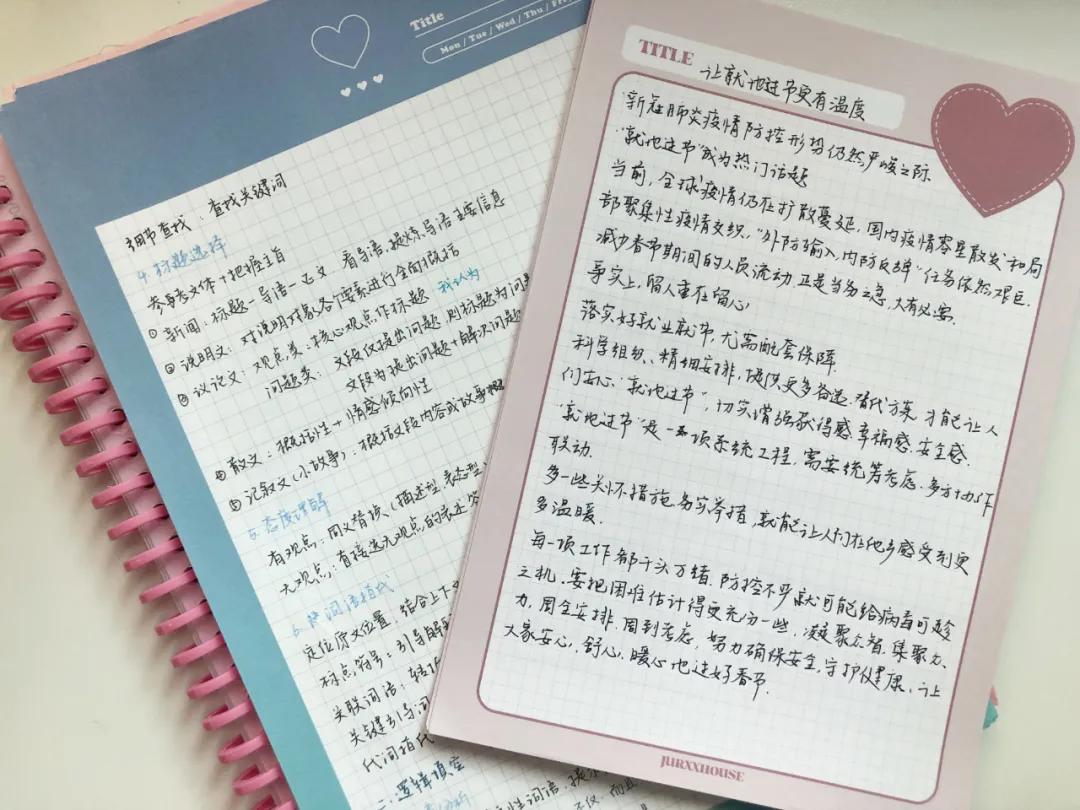 Title
Mon / Tue / Wed / Thu / Fr
细节查找：查找关键词
4.标题选择
参考文体＋把握主旨
①新闻：标题－导语－正文 看导语，提炼导语主要信息
②说明文：对说明对象各个要素进行全面概括
③议论文：观点类：核心观点作标题 我认为
问题类：文段仅提出问题，则标题为问题
文段为提出问题＋解决问题
④散文：概括性＋情感倾向性
⑤记叙文（小故事）：概括文段内容或故事
5.态度理解
有观点：同义替换（描述型，表态型
无观点：直接选无观点的表述
6.词语指代
定位原文位置，结合上下文
标点符号：引导解释
关联词语：转折
关键引导词
代词指代
二.逻辑填空
性词语，提示
不仅 而且
TITLE
让就地过节更有温度
新冠肺炎疫情防控形势仍然严峻之际
"就地过节"成为热门话题
当前，全球疫情仍在扩散蔓延，国内疫情零星散发和局
部聚集性疫情交织，"外防输入，内防反弹"任务依然艰巨.
减少春节期间的人员流动，正是当务之急，大有必要.
事实上，留人重在留心
落实好就业就节，尤需配套保障
科学组织、精细安排，提供更多备选、替代方案，才能让人
们安心"就地过节"，切实增强获得感、幸福感、安全感.
"就地过节"是一项系统工程，需要统筹考虑、多方协作
联动.
多一些关怀措施、务实举措，就能让人们在他乡感受到更
多温暖.
每一项工作都千头万绪，防控不平就可能给病毒可趁
之机，要把困难估计得更充分一些，凝聚众智、集聚众
力，周全安排、周到考虑，努力确保安全、守护健康，让
大家安心、舒心、暖心地过好春节.
JURXXHOUSE